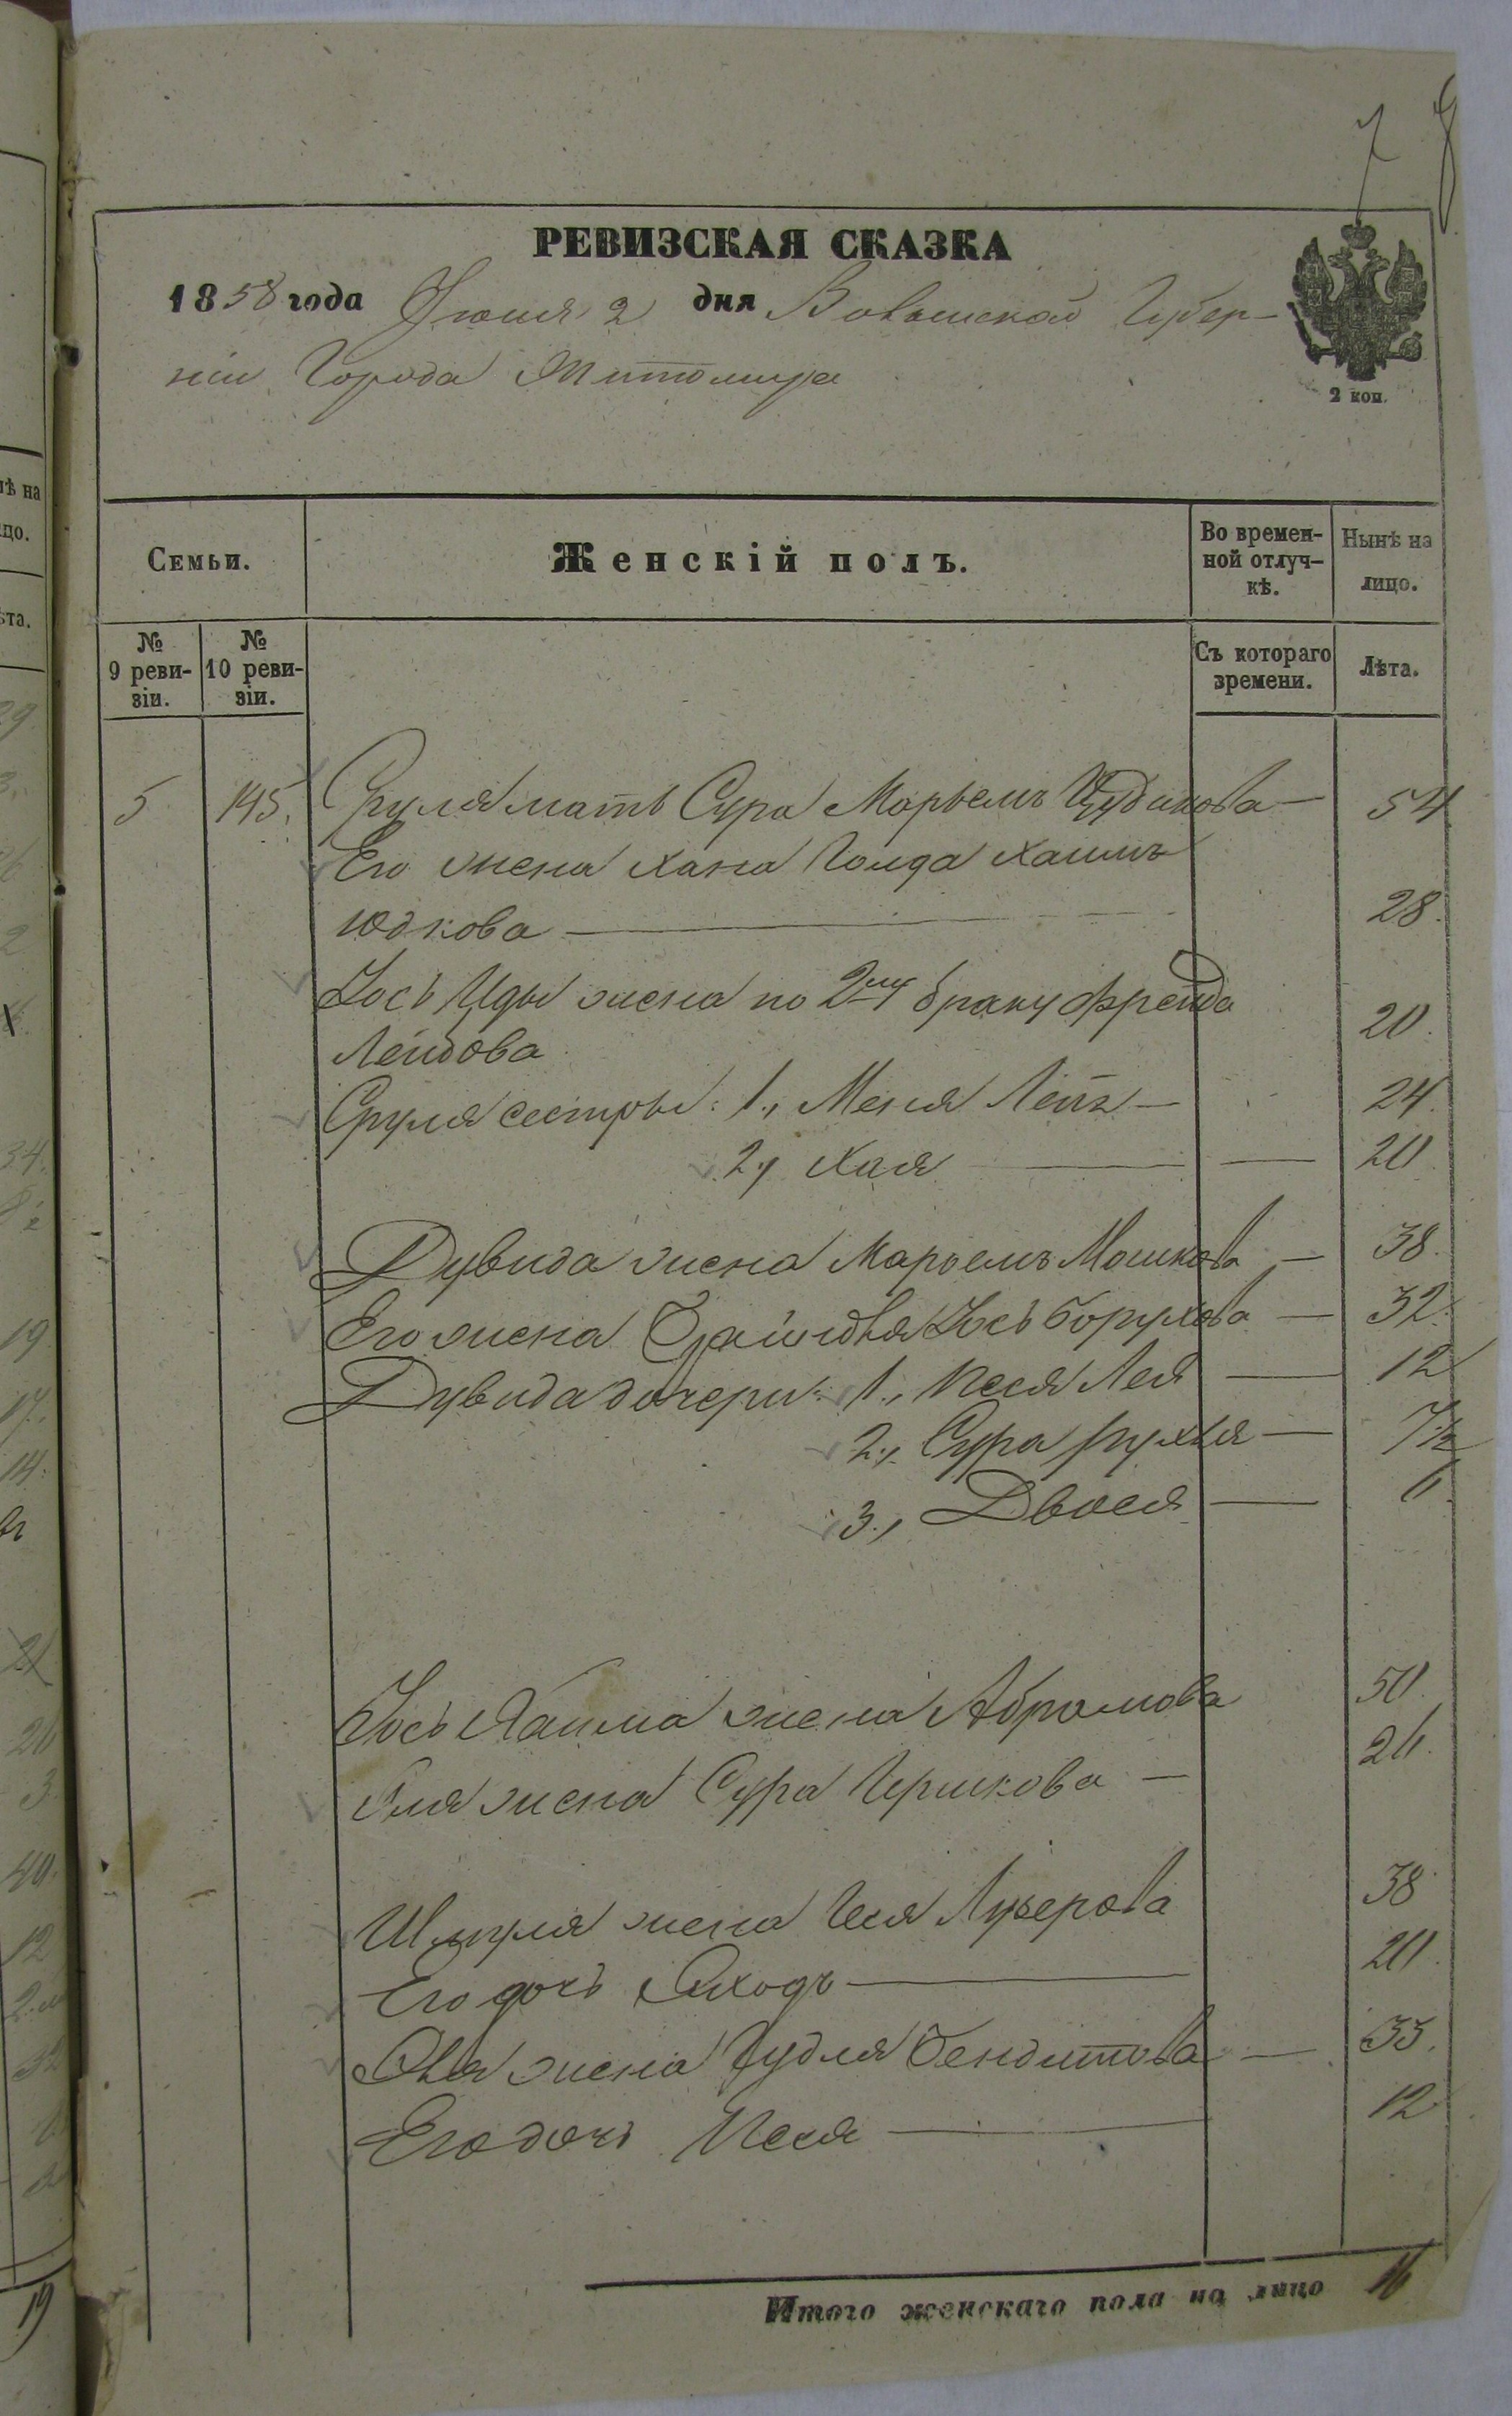 7 8
РЕВИЗСКАЯ СКАЗКА
1858 года Июня 2 дня Волынской Губер-
ніи Города Житомира
2 коп.
Семьи.
Женскій полъ.
Во времен-
ной отлуч-
кѣ.
Нынѣ на
лицо.
№
9 реви-
зіи.
№
10 реви-
зіи.
Съ котораго
времени.
Лѣта.
5 145. Сруля мать Сура Марьемъ — 54
Его жена Хана Голда Хаимъ
Юдкова — 28.
Іось Иды жена по 2му браку Фрейда 20.
Лейбова
Сруля сестры: 1., Меня Лея — 24.
2., Хая — 20
Дувида жена Марьемъ Мошкова — 38.
Его жена Іось Борухова — 32.
Дувида дочери: 1., Песя Лея — 12
2., Сура Рухля — 7½
3., Двося — 6
Іось Хаима жена Абрамова 50.
жена Сура Гершкова — 26.
Шмуля жена Геся Лузерова 38
Его дочь — 20.
жена Гудля Бендитова — 33.
Его дочь Песя — 12
Итого женскаго пола на лицо 16
нѣ на
цо.
ѣта.
29.
34.
19
17.
14.
21
20
3
40.
12
19